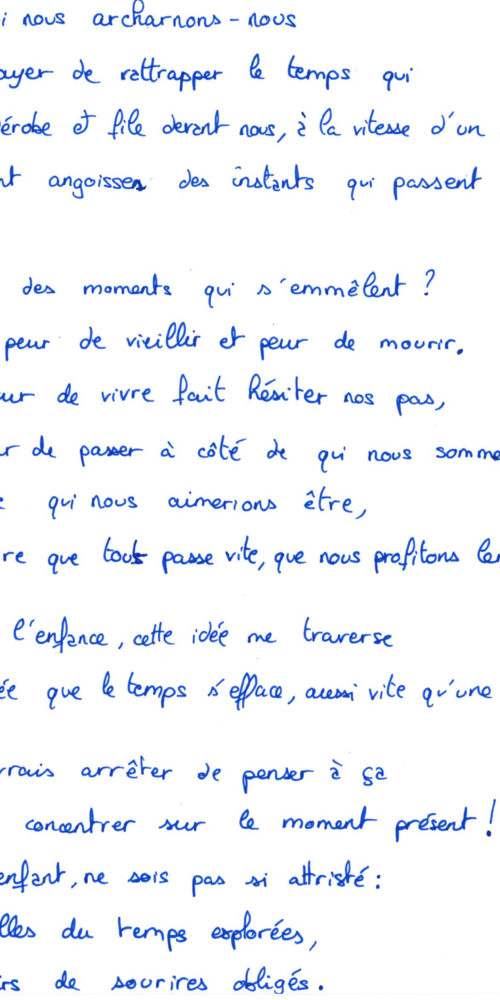 i nous archarnons-nous
ayer de rattrapper le temps qui
érobe et file devant nous, à la vitesse d'un
nt angoisses des instants qui passent
des moments qui s'emmêlent ?
peur de vieillir et peur de mourir.
ur de vivre fait hésiter nos pas,
r de passer à côté de qui nous somme
qui nous aimerions être,
re que tout passe vite, que nous profitons le
l'enfance, cette idée me traverse
ée que le temps s'efface, aussi vite qu'une
rrais arrêter de penser à ça
concentrer sur le moment présent !
enfant, ne sois pas si attristé :
lles du temps explorées,
rs de sourires obligés.